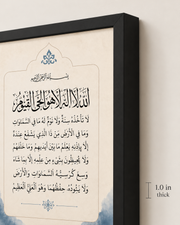 بسم الله الرحمن الرحيم
الله لا إله إلا هو الحي القيوم
لا تأخذه سنة ولا نوم له ما في السماوات
وما في الأرض من ذا الذي يشفع عنده
إلا بإذنه يعلم ما بين أيديهم وما خلفهم
ولا يحيطون بشيء من علمه إلا بما شاء
وسع كرسيه السماوات والأرض
ولا يئوده حفظهما وهو العلي العظيم
1.0 in
thick